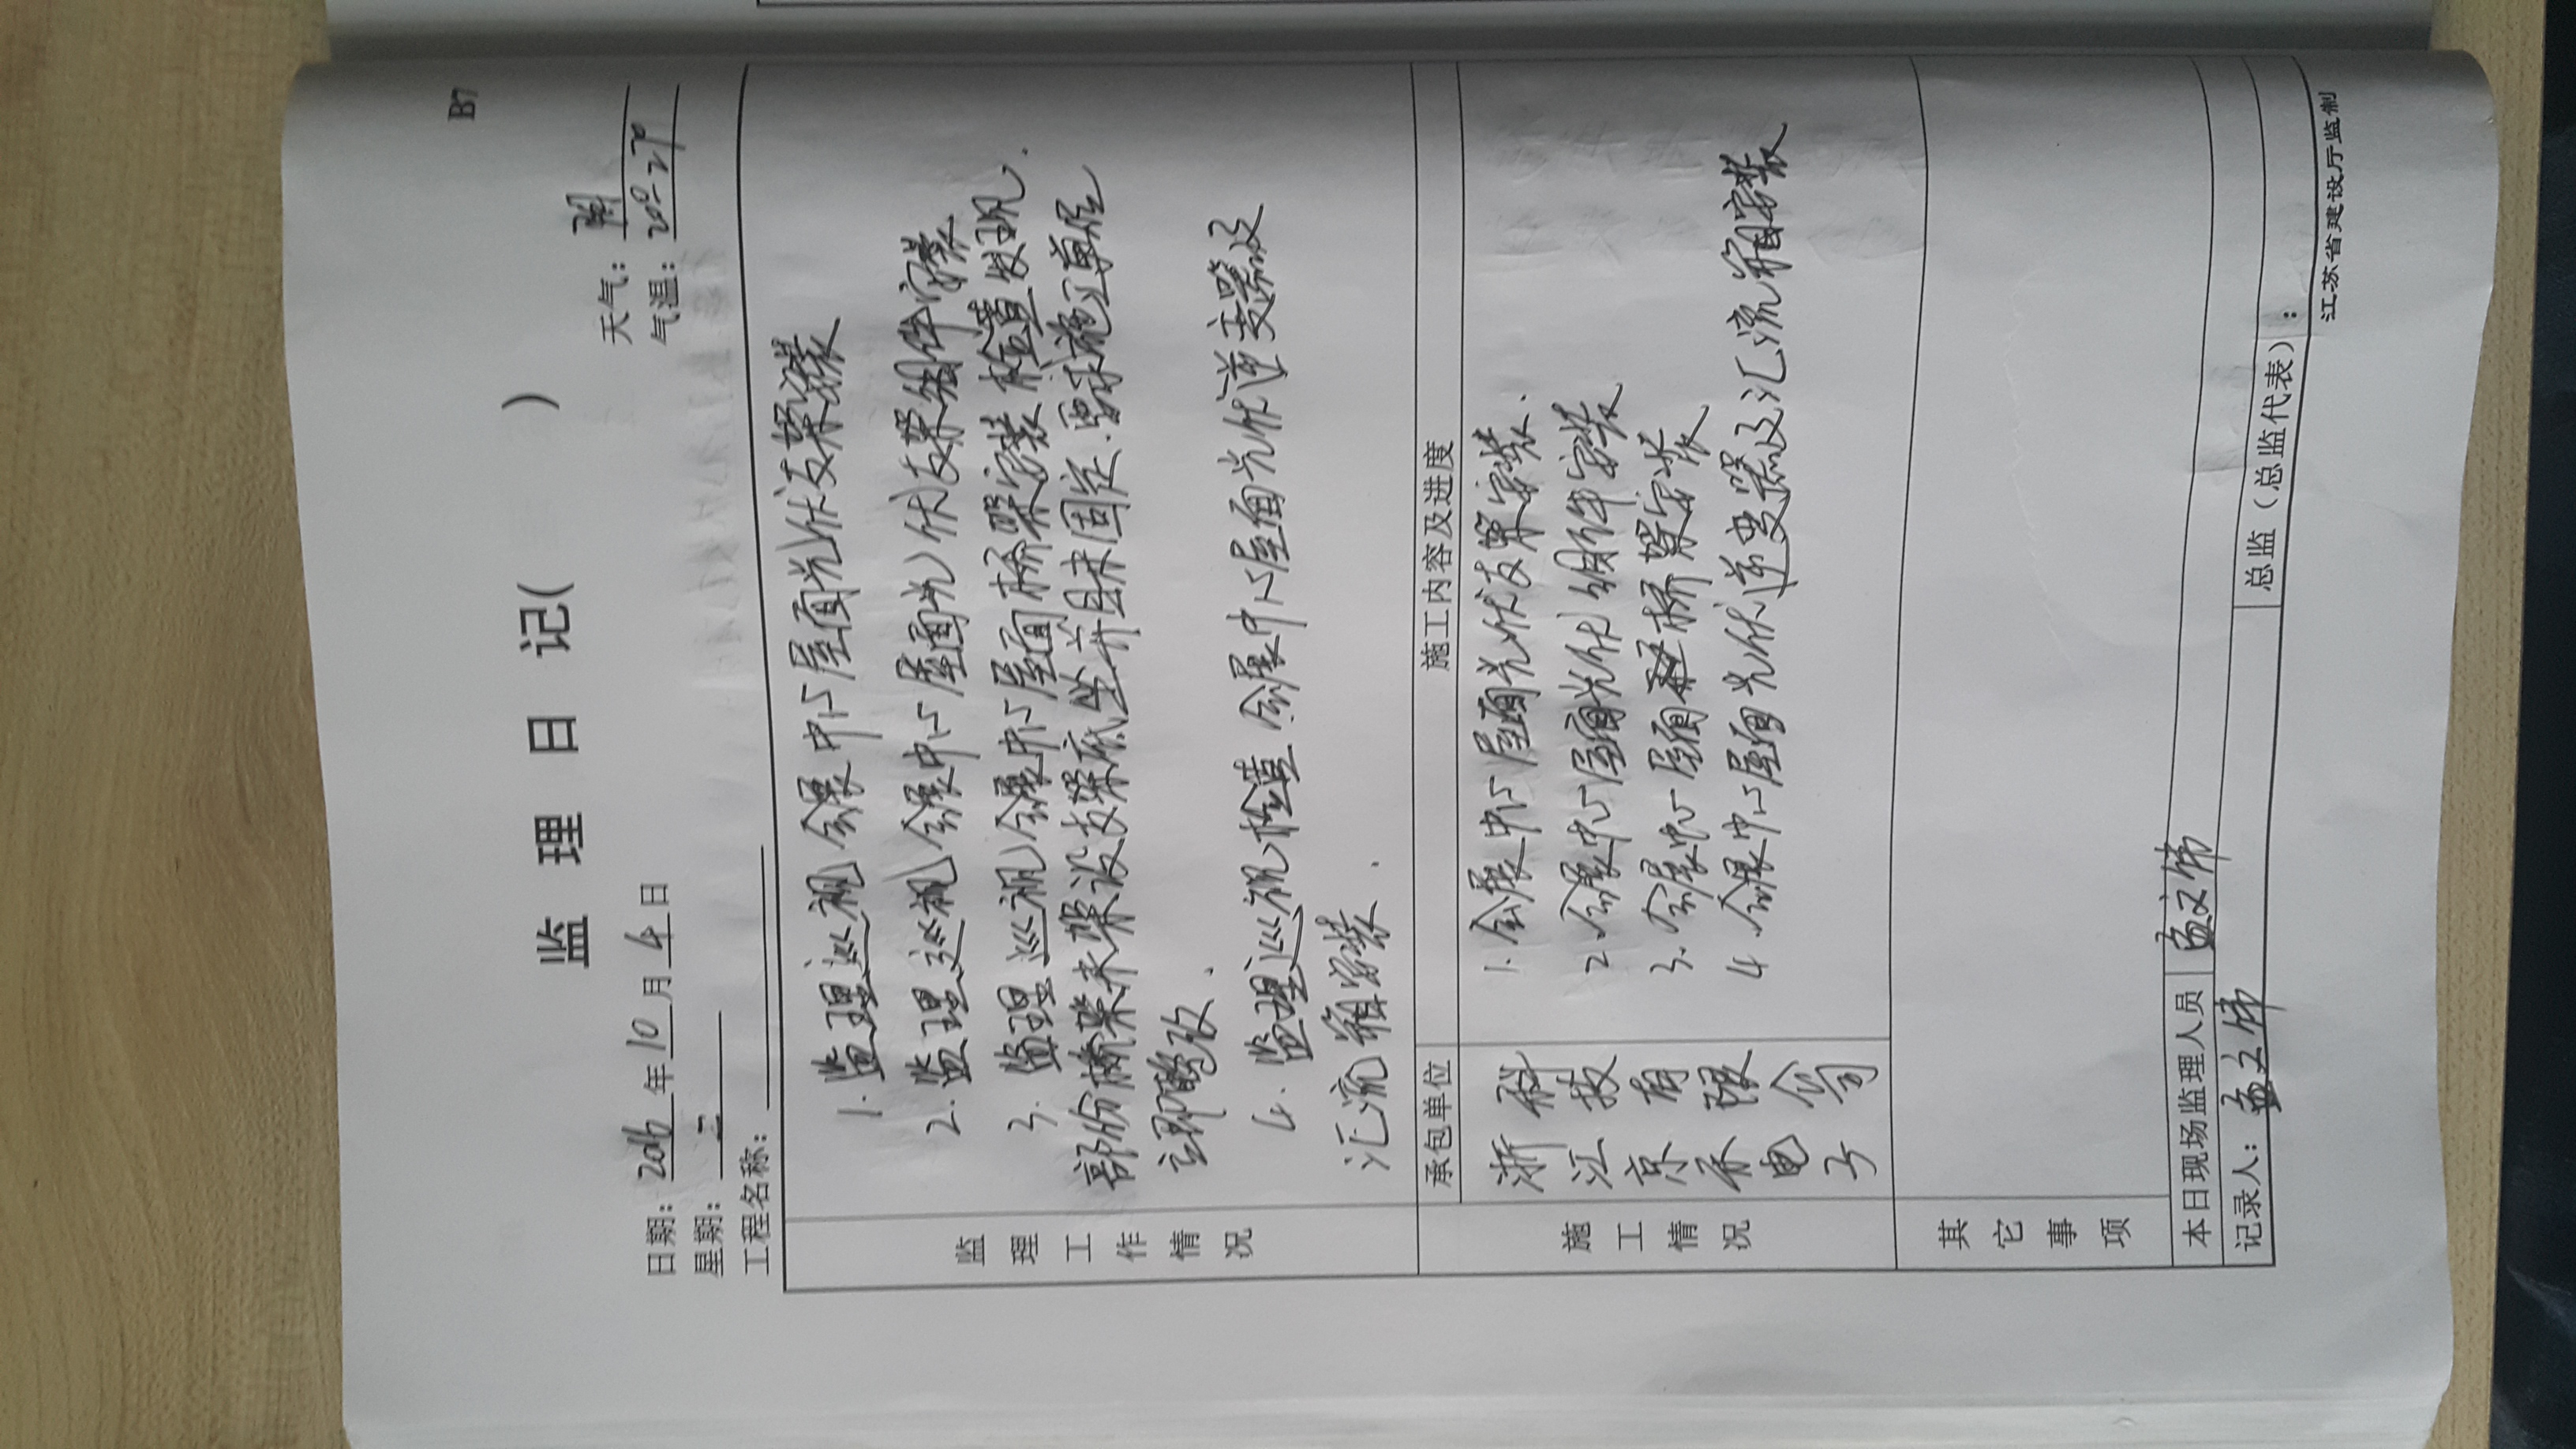 B7
监理日记( )
日期：2016年10月4日 天气：阴
星期：二 气温：20°-27°
工程名称：
监理工作情况
1. 监理巡视会展中心屋面光伏支架安装
2. 监理巡视会展中心屋面光伏支架组件安装
3. 监理巡视会展中心屋面桥架安装检查发现.
部份桥架未架设支架底垫并且未固定.要求施工单位
立即整改.
4. 监理巡视检查会展中心屋面光伏逆变器及
汇流箱安装.
施工情况
承包单位 施工内容及进度
浙江京禾电子
科技有限公司
1. 会展中心屋面光伏支架安装.
2. 会展中心屋面光伏组件安装
3. 会展中心屋面桥架安装
4. 会展中心屋面光伏逆变器及汇流箱安装
其它事项
本日现场监理人员 孟文伟
记录人：孟文伟 总监（总监代表）：
江苏省建设厅监制